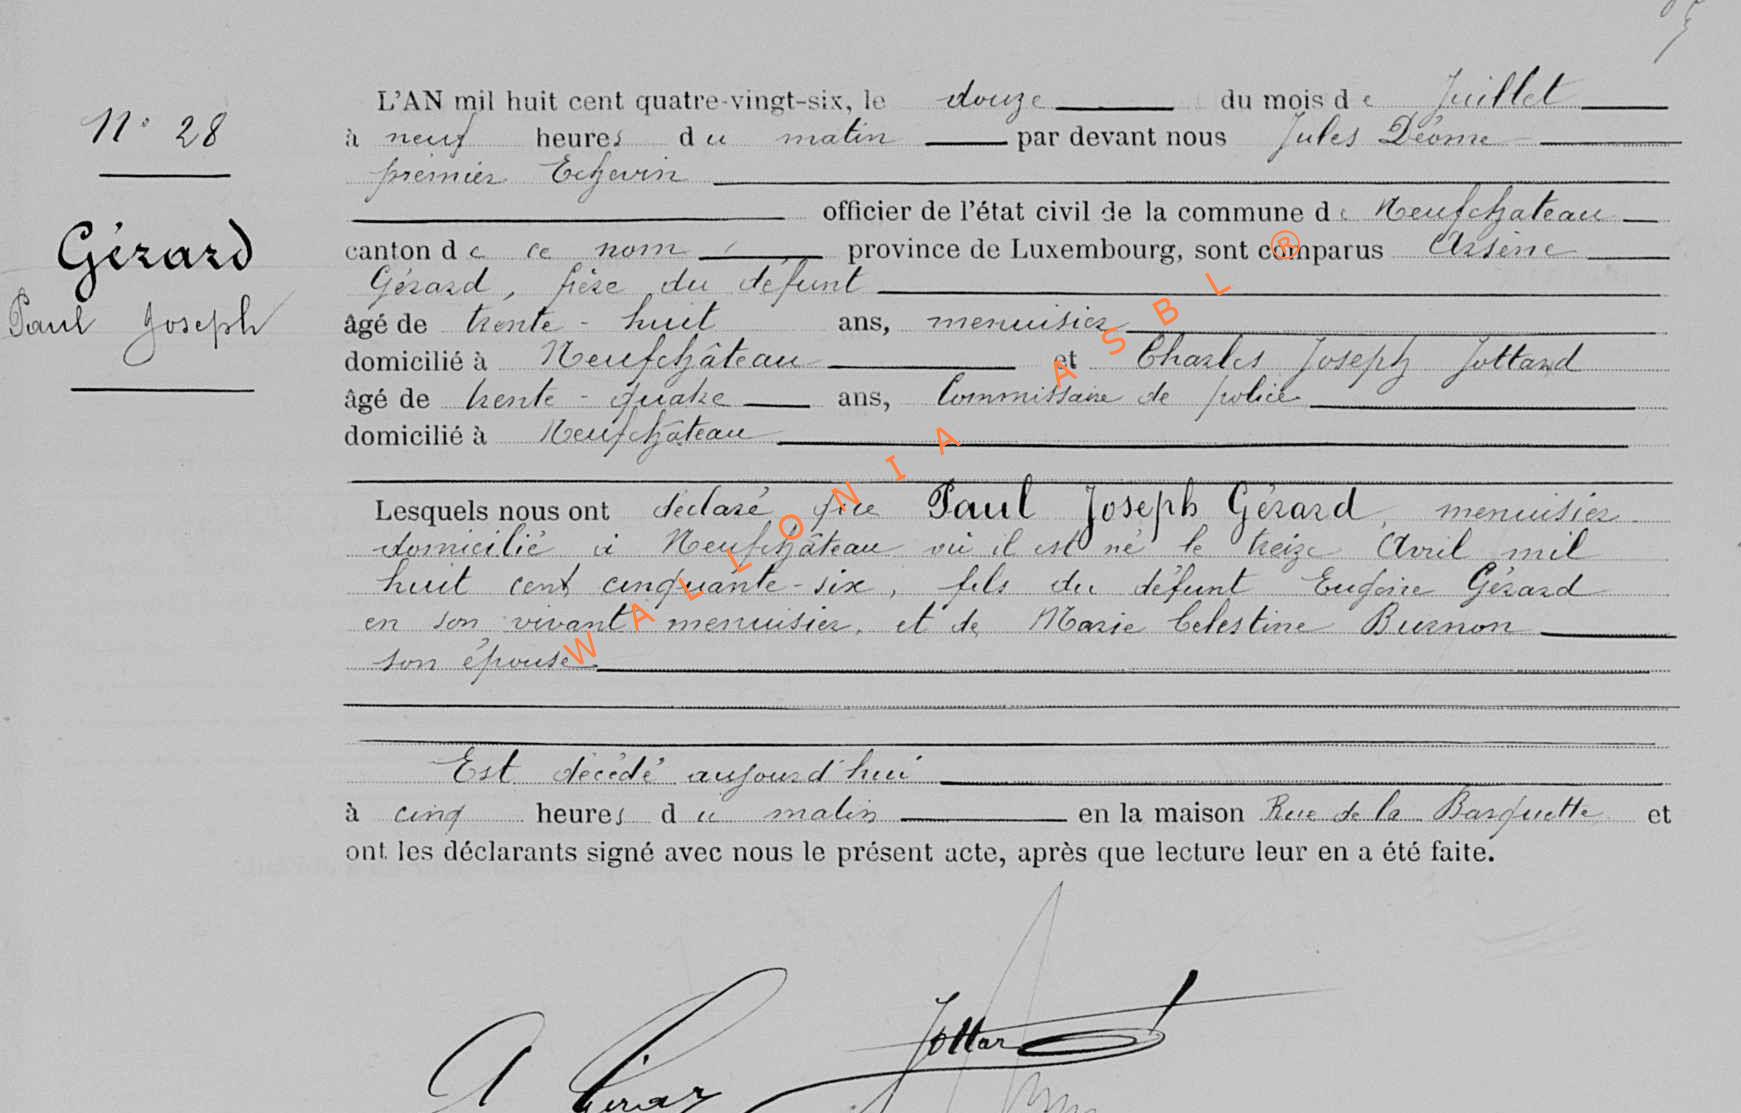 N° 28
Gérard
Paul Joseph
L'AN mil huit cent quatre-vingt-six, le douze du mois de Juillet
à neuf heures du matin par devant nous Jules Déome
premier Echevin
officier de l'état civil de la commune de Neufchateau
canton de ce nom province de Luxembourg, sont comparus Arsène
Gérard, frère du défunt
âgé de trente-huit ans, menuisier
domicilié à Neufchâteau et Charles Joseph Jottard
âgé de trente-quatre ans, Commissaire de police
domicilié à Neufchâteau
Lesquels nous ont déclaré que Paul Joseph Gérard, menuisier
domicilié à Neufchâteau où il est né le treize Avril mil
huit cent cinquante-six, fils du défunt Eugène Gérard
en son vivant menuisier, et de Marie Celestine Burnon
son épouse
Est décédé aujourd'hui
à cinq heures du matin en la maison Rue de la Basquette et
ont les déclarants signé avec nous le présent acte, après que lecture leur en a été faite.
A Gérar
Jottard
WALLONIA ASBL ®